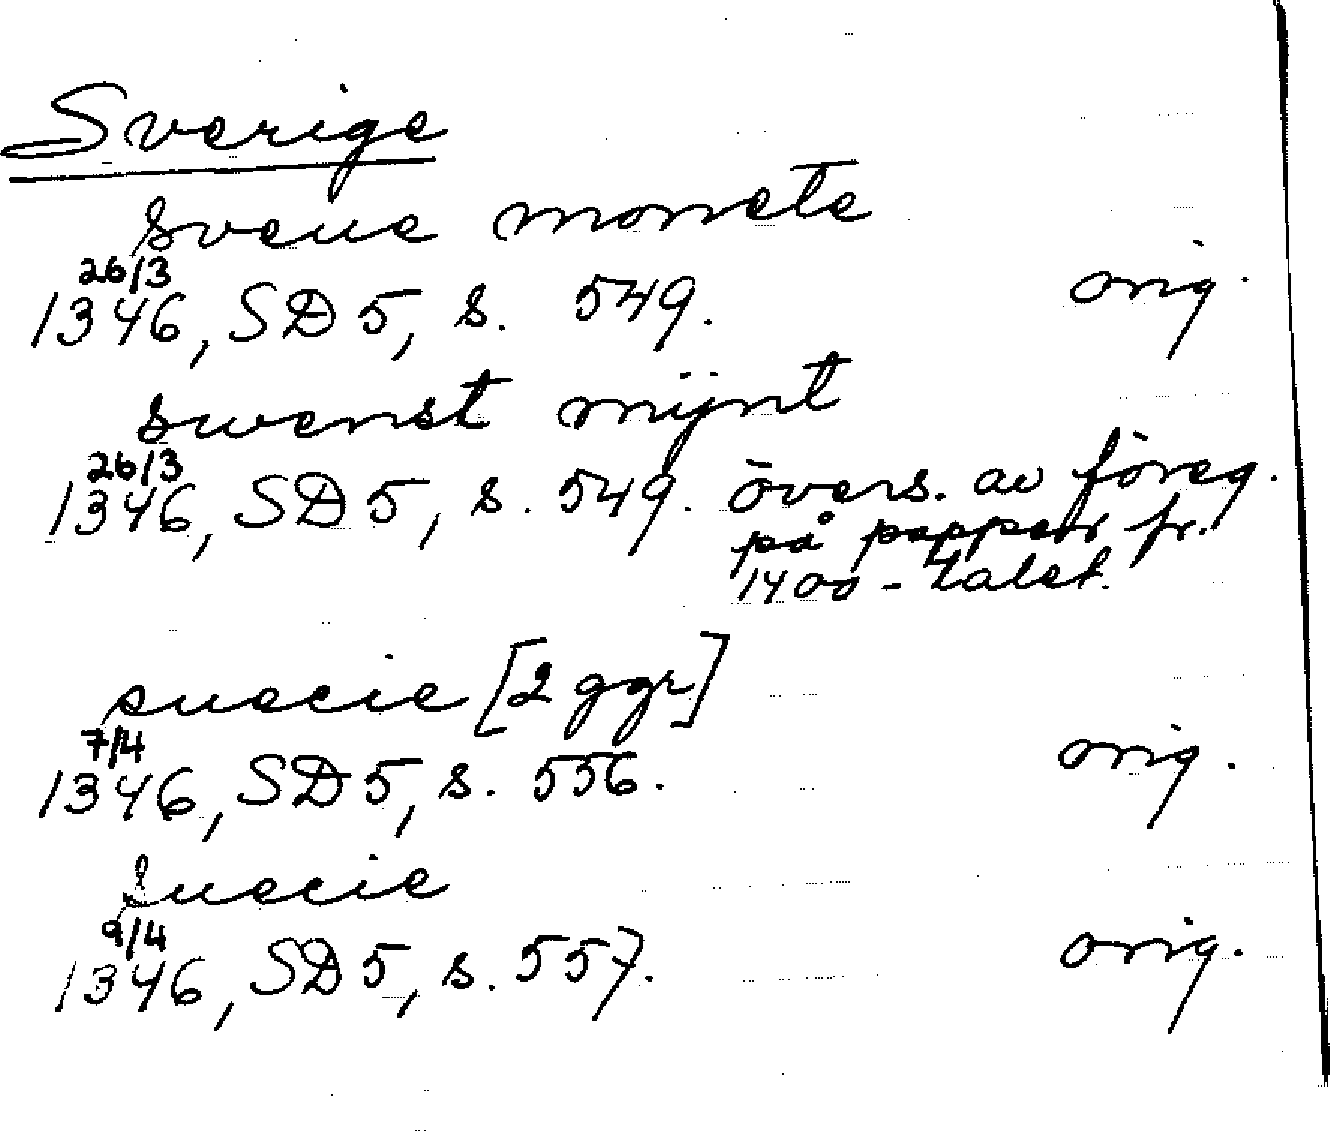 Sverige
sveue monete
26/3
1346, SD 5, s. 549. orig.
swenst mÿnt
26/3
1346, SD 5, s. 549. övers. av föreg.
på papper fr.
1400-talet.
suecie [2 ggr]
7/4
1346, SD 5, s. 556. orig.
Suecie
9/4
1346, SD 5, s. 557. orig.